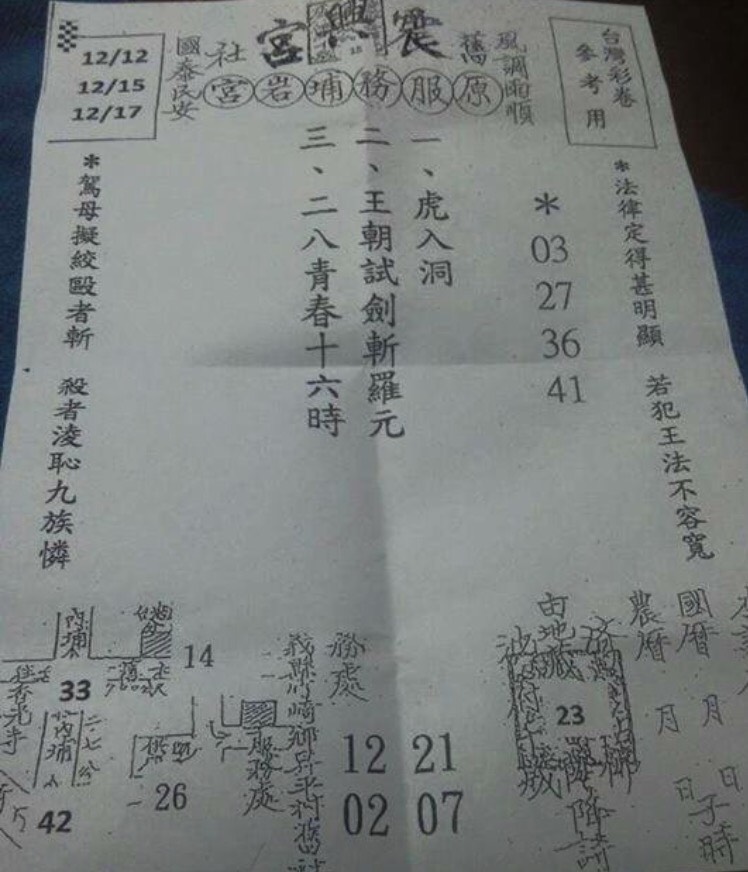 12/12
12/15
12/17
國泰民安
社
宮興震
舊
風調雨順
宮岩埔務服原
台灣彩卷
參考用
*法律定得甚明顯 若犯王法不容寬
*
03
27
36
41
一、虎入洞
二、王朝試劍斬羅元
三、二八青春十六時
*駕母擬絞毆者斬 殺者淩恥九族憐
內埔
14
33
內埔
42
26
服務處
務處
12 21
02 07
由地藏
23
降詩
國曆 月 日
農曆 月 日
子時